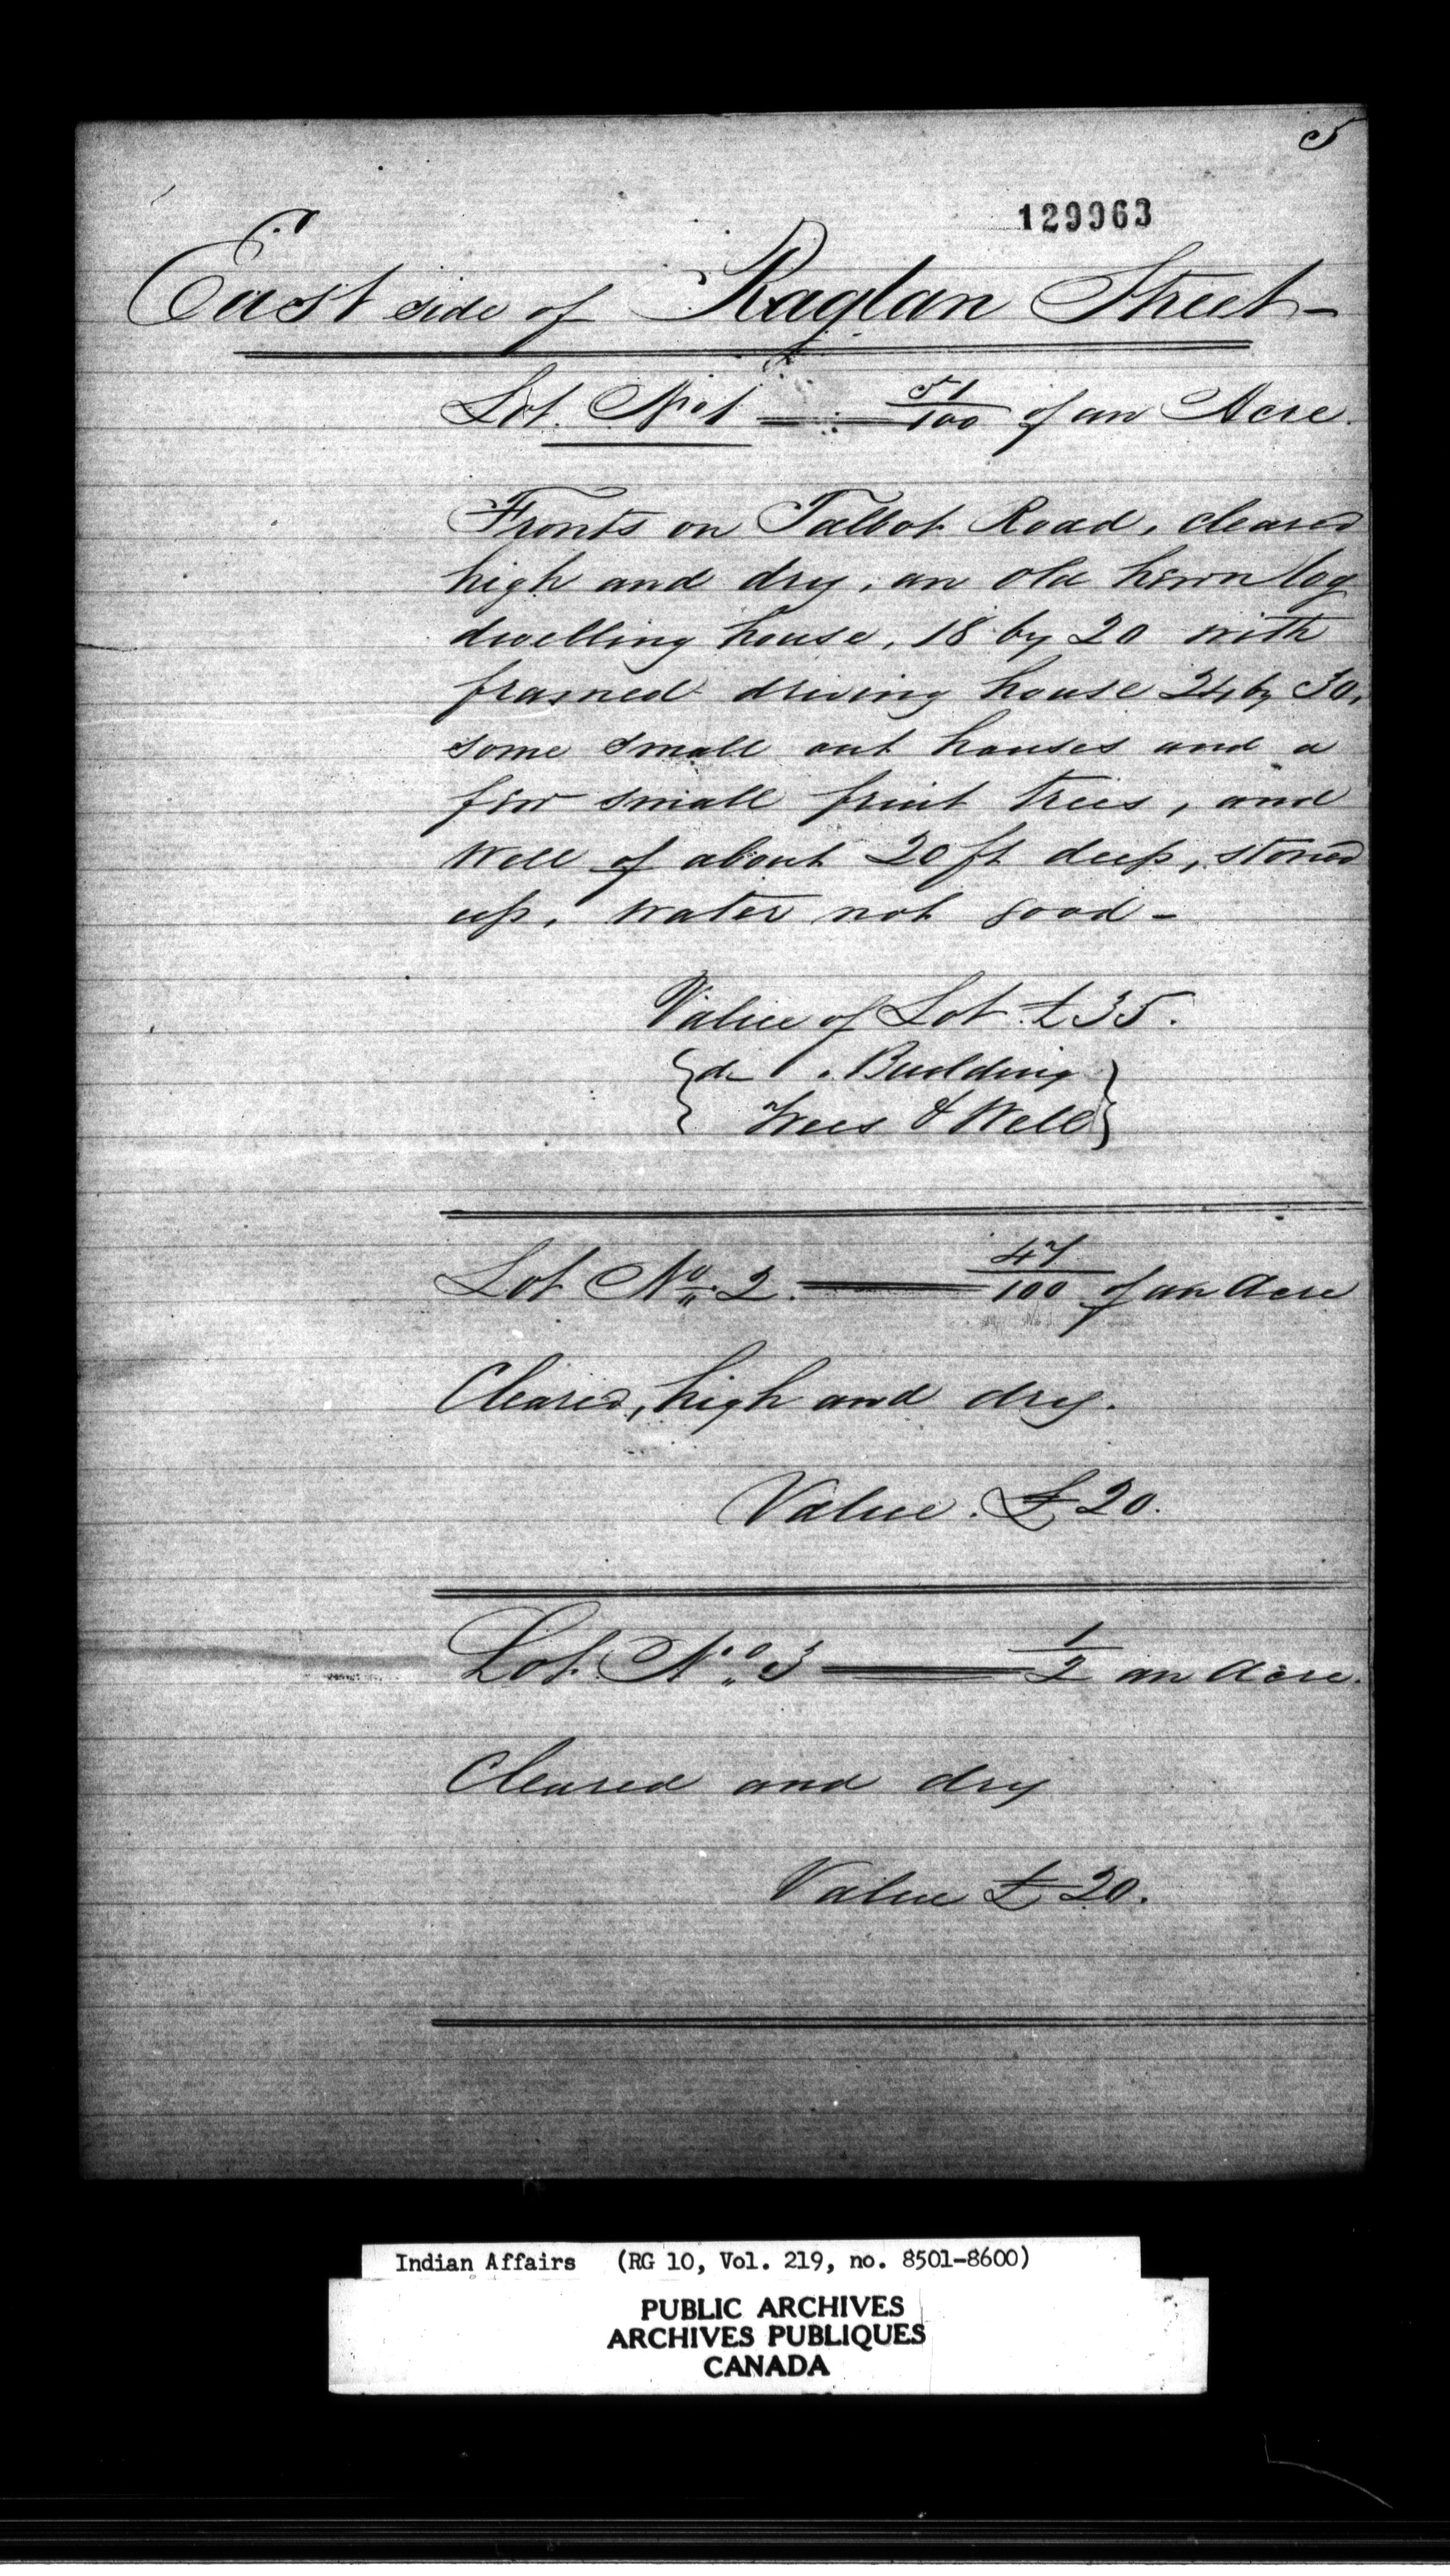 5
129963
East side of Raglan Street-
Lot No 1 51/100 of an Acre.
Fronts on Talbot Road, cleared
high and dry, an old hewn log
dwelling house, 18 by 20 with
framed driving house 24 by 30,
some small out houses and a
few small fruit trees, and
Well of about 20 ft deep, stoned
up, water not good -
Value of Lot £35.
{ do . Building }
{ Trees & Well }
Lot No 2. 47/100 of an Acre
Cleared, high and dry.
Value. £20.
Lot No 3 1/2 an Acre.
Cleared and dry
Value £20.
Indian Affairs (RG 10, Vol. 219, no. 8501-8600)
PUBLIC ARCHIVES
ARCHIVES PUBLIQUES
CANADA